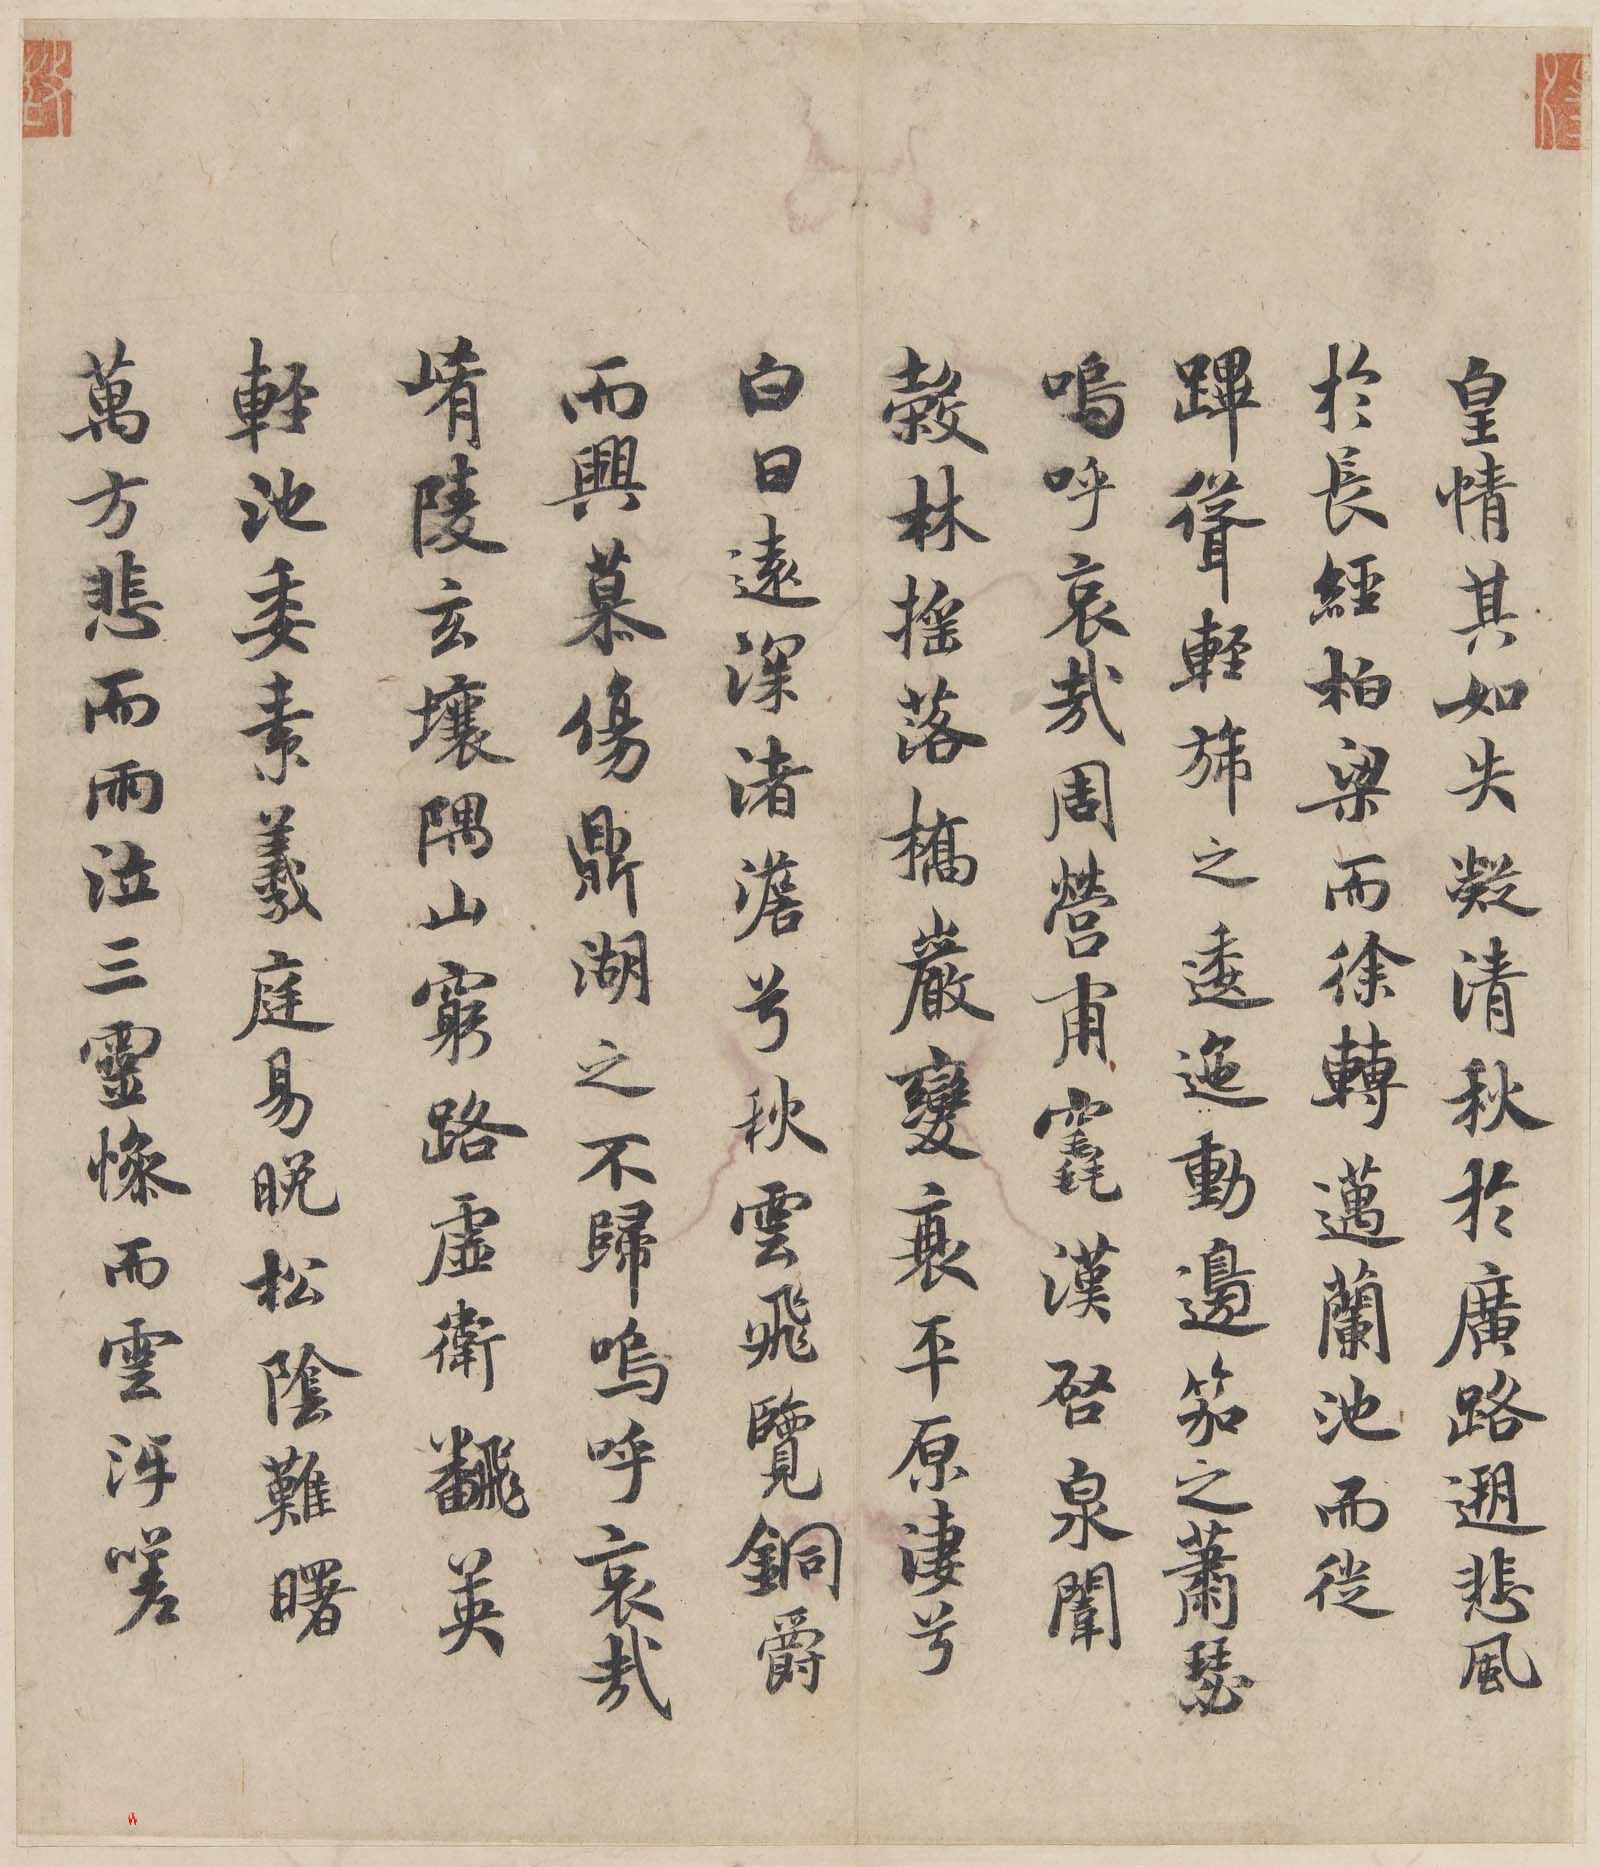 皇情其如失凝清秋於廣路遡悲風
於長經柏梁而徐轉邁蘭池而從
蹕聳輕旆之逶迤動邊笳之蕭瑟
嗚呼哀哉周營甫竁漢啓泉闈
穀林搖落橋巖變衰平原淒兮
白日遠深渚澹兮秋雲飛覽銅爵
而興慕傷鼎湖之不歸嗚呼哀哉
崤陵玄壤隅山窮路虛衛飜英
輕池委素羲庭易晚松陰難曙
萬方悲而雨泣三靈慘而雲沍嗟